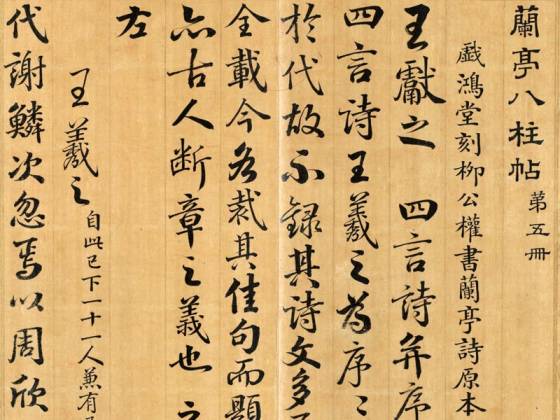 蘭亭八柱帖 第五冊
戲鴻堂刻柳公權書蘭亭詩原本
王獻之 四言詩并序
四言詩王羲之為序〻
於代故不錄其詩文多不
全載今各裁其佳句而題
亦古人断章之義也
左
王羲之 自此已下一十一人兼有
代謝鱗次忽焉以周欣